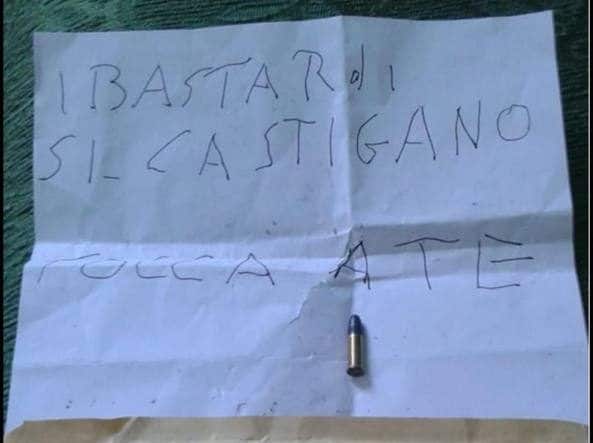 I BASTARdI
SI CASTIGANO
TOCCA A TE